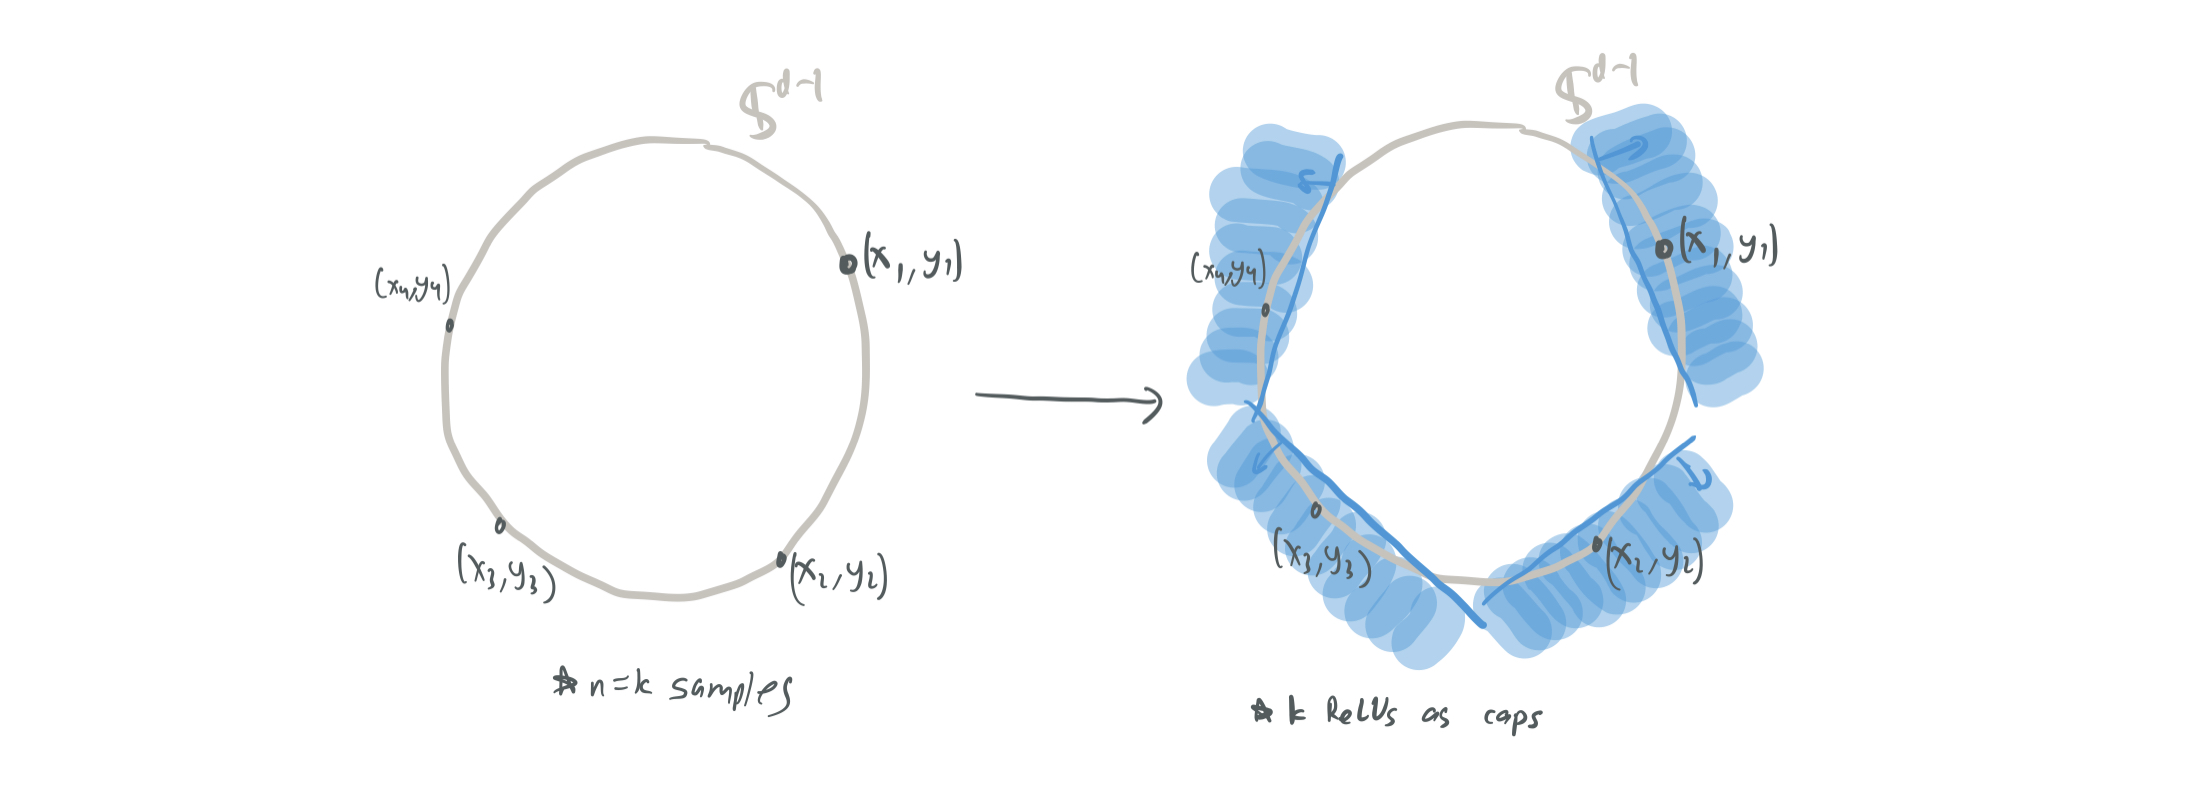 $\mathbb{S}^{d-1}$
(x₁, y₁)
(x₄,y₄)
(x₃,y₃)
(x₂,y₂)
☆ n=k samples
$\mathbb{S}^{d-1}$
(x₁, y₁)
(x₄,y₄)
(x₃,y₃)
(x₂,y₂)
☆ k ReLUs as caps